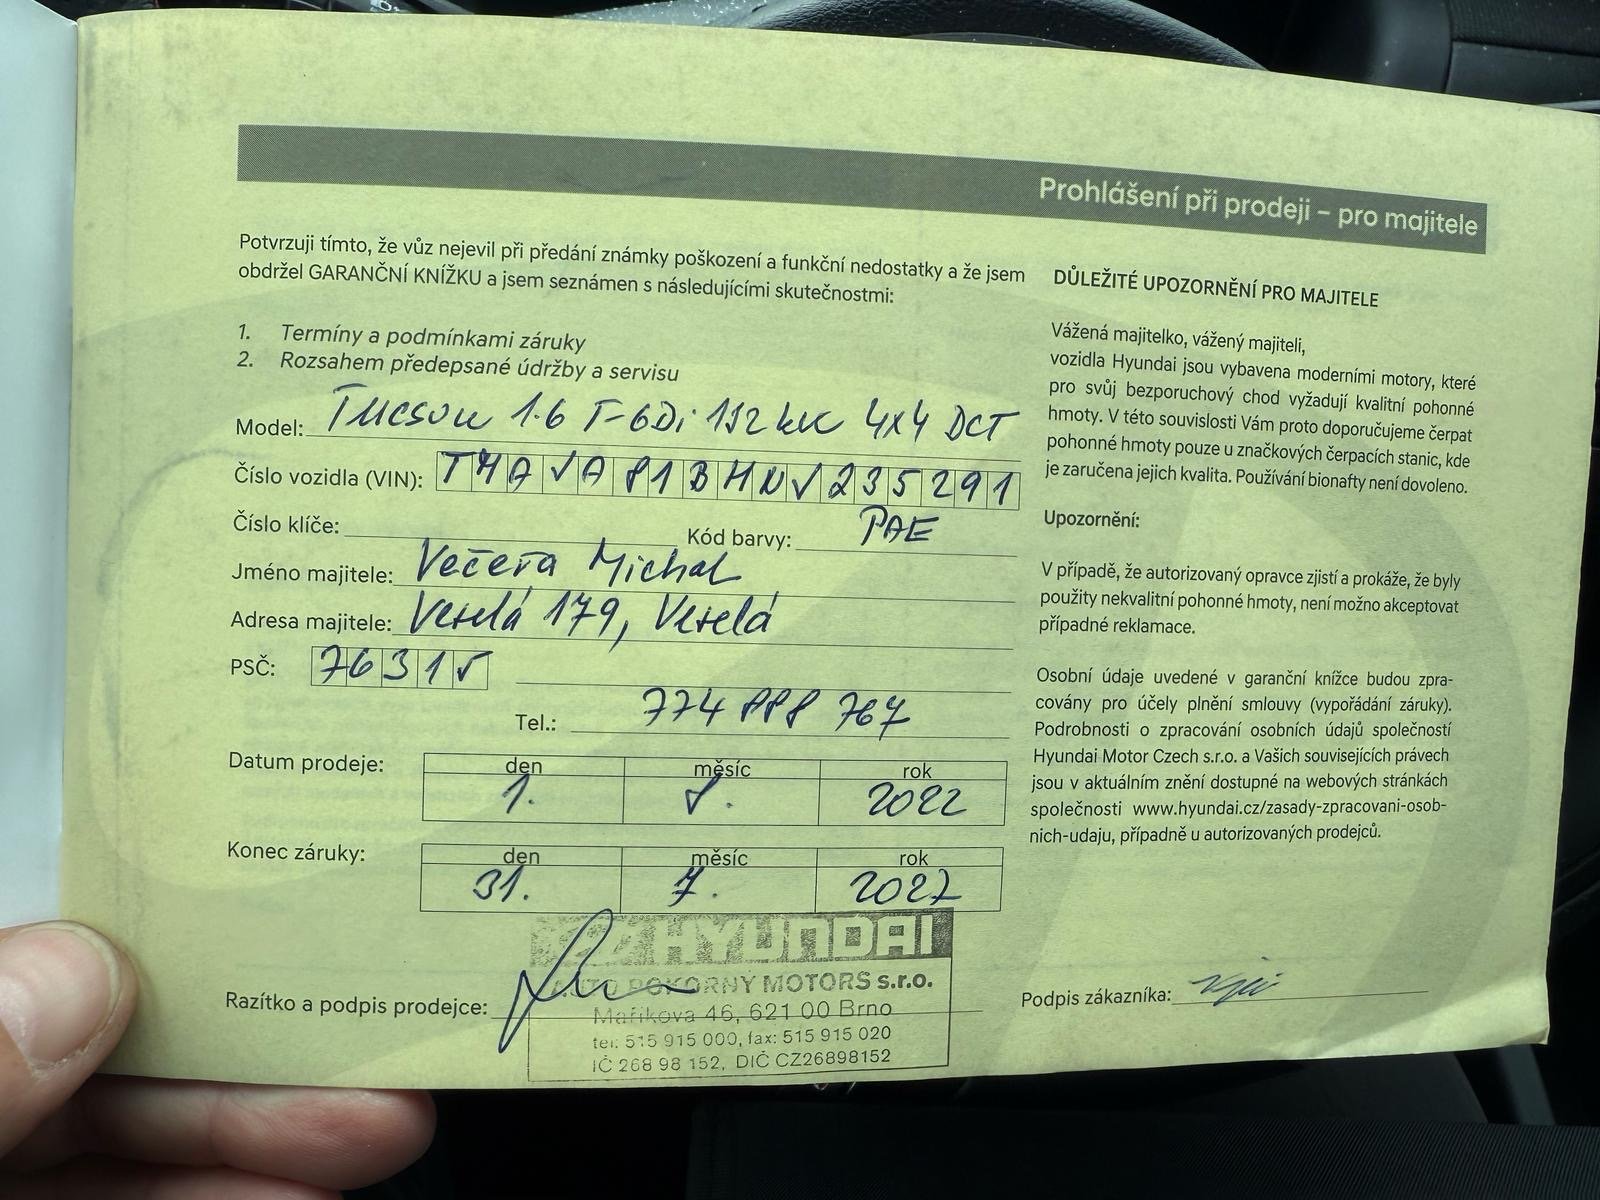 Prohlášení při prodeji – pro majitele
Potvrzuji tímto, že vůz nejevil při předání známky poškození a funkční nedostatky a že jsem
obdržel GARANČNÍ KNÍŽKU a jsem seznámen s následujícími skutečnostmi:
1. Termíny a podmínkami záruky
2. Rozsahem předepsané údržby a servisu
Model: Tucson 1.6 T-GDi 132 kW 4x4 DCT
Číslo vozidla (VIN): TMAJA81BHNJ235291
Číslo klíče:
Kód barvy: PAE
Jméno majitele: Večeřa Michal
Adresa majitele: Veselá 179, Veselá
PSČ: 76315
Tel.: 774 888 767
Datum prodeje: den měsíc rok
1. 8. 2022
Konec záruky: den měsíc rok
31. 7. 2027
Razítko a podpis prodejce:
HYUNDAI
AUTO POKORNÝ MOTORS s.r.o.
Maříkova 46, 621 00 Brno
tel: 515 915 000, fax: 515 915 020
IČ 268 98 152, DIČ CZ26898152
DŮLEŽITÉ UPOZORNĚNÍ PRO MAJITELE
Vážená majitelko, vážený majiteli,
vozidla Hyundai jsou vybavena moderními motory, které
pro svůj bezporuchový chod vyžadují kvalitní pohonné
hmoty. V této souvislosti Vám proto doporučujeme čerpat
pohonné hmoty pouze u značkových čerpacích stanic, kde
je zaručena jejich kvalita. Používání bionafty není dovoleno.
Upozornění:
V případě, že autorizovaný opravce zjistí a prokáže, že byly
použity nekvalitní pohonné hmoty, není možno akceptovat
případné reklamace.
Osobní údaje uvedené v garanční knížce budou zpra-
covány pro účely plnění smlouvy (vypořádání záruky).
Podrobnosti o zpracování osobních údajů společností
Hyundai Motor Czech s.r.o. a Vašich souvisejících právech
jsou v aktuálním znění dostupné na webových stránkách
společnosti www.hyundai.cz/zasady-zpracovani-osob-
nich-udaju, případně u autorizovaných prodejců.
Podpis zákazníka: